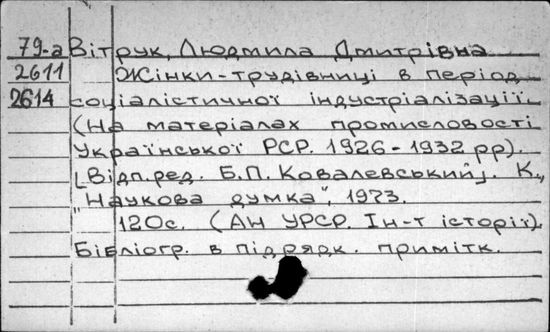 79-а Вітрук, Людмила Дмитрівна
2611 Жінки-трудівниці в період
2614 соціалістичної індустріалізації.
(На матеріалах промисловості
Української РСР. 1926-1932 рр).
[Відп.ред. Б.П. Ковалевський]. К.,
"Наукова думка", 1973.
120с. (АН УРСР. Ін-т історії).
Бібліогр. в підрядк. примітк.